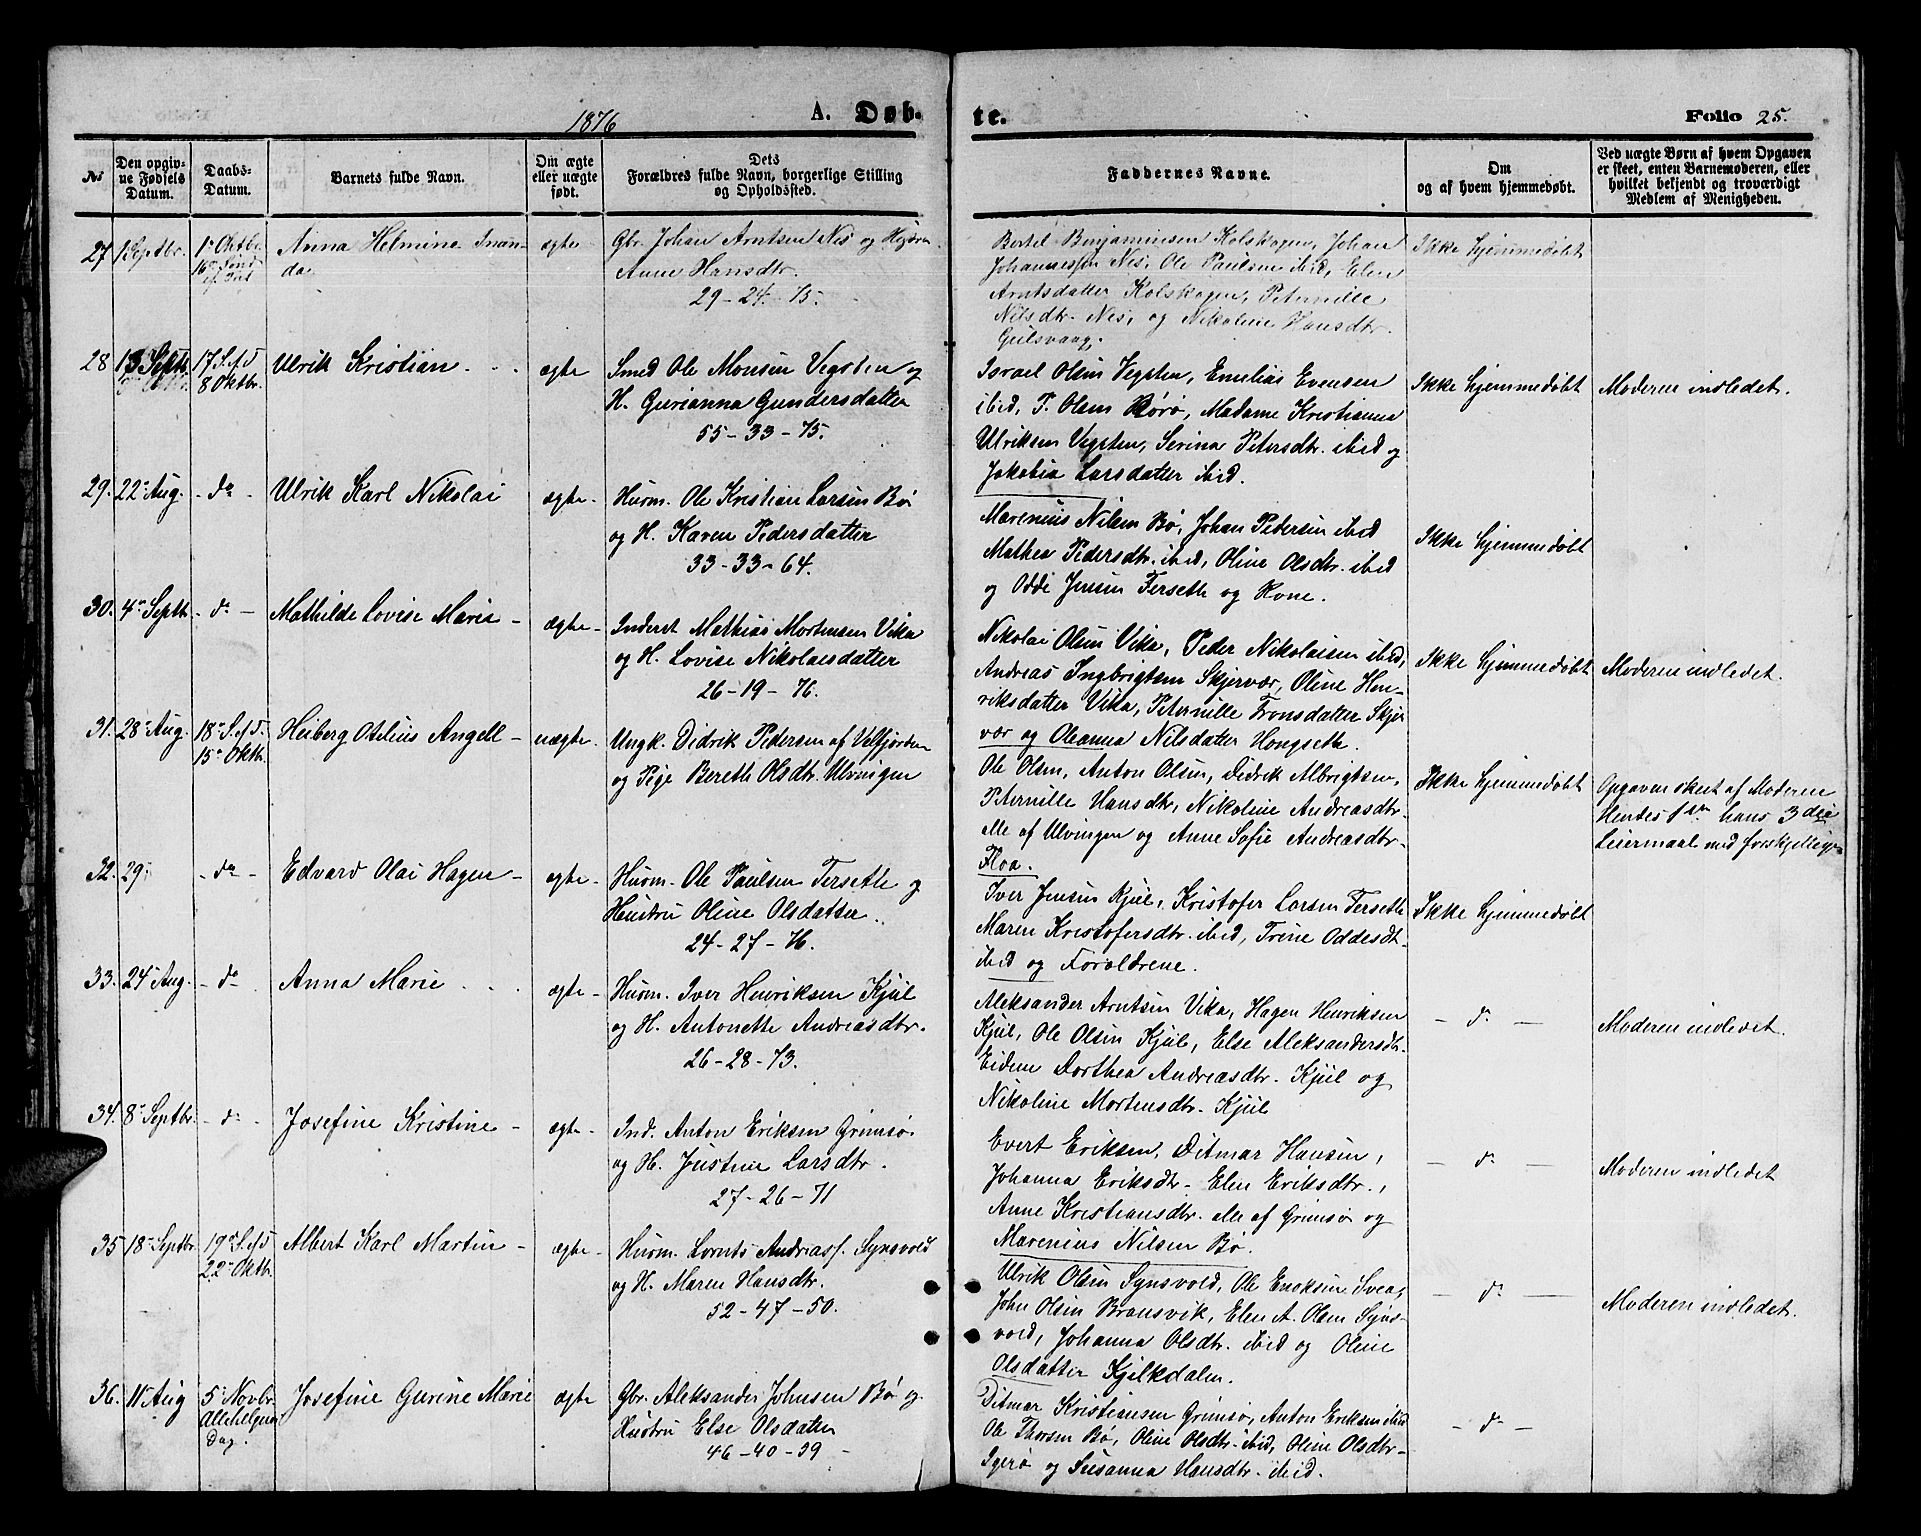 1876
A. Døb-
te.
Folio 25.
No
Den opgiv-
ne Fødsels
Datum.
Daabs-
Datum.
Barnets fulde Navn.
Om ægte
eller uægte
født.
Dets
Forældres fulde Navn, borgerlige Stilling
og Opholdssted.
Faddernes Navne.
Om
og af hvem hjemmedøbt.
Ved uægte Børn af hvem Opgaven
er skeet, enten Barnemoderen, eller
hvilket bekjendt og troværdigt
Medlem af Menigheden.
27 1 Septbr. 1 Oktbr.
16 Sønd
ef. Tref
Anna Helmine
ægte
Gbr. Johan Arntsen Nes og Hustru
Anne Hansdtr.
29-24-75.
Bertel Benjaminsen Kolskogen, Johan
Johannessen Nes, Ole Paulsen ibid, Elen
Arntsdatter Kolskogen, Peternille
Nilsdtr. Nes, og Nikoline Hansdtr.
Gulsvaag.
Ikke hjemmedøbt
28 13 Septbr. 17 S.e.f.
8 Oktbr.
Ulrik Kristian
ægte
Smed Ole Monsen Vegsten og
H. Gurianna Gundersdatter
55-33-75.
Israel Olsen Vegsten, Emilius Evensen
ibid, P. Olsen Rørø, Madame Kristianna
Ulriksen Vegsten, Serina Petersdtr. ibid og
Jakobia Larsdatter ibid.
Ikke hjemmedøbt
Moderen indledet.
29. 22 Aug. - do -
Ulrik Karl Nikolai
ægte
Husm. Ole Kristian Larsen Bø
og H. Karen Pedersdatter
33-33-64.
Marenius Nilsen Bø, Johan Pedersen ibid
Mathea Pedersdtr. ibid, Oline Olsdtr. ibid
og Odde Jensen Ferseth og Kone.
Ikke hjemmedøbt
30. 4 Septbr. - do -
Mathilde Lovise Marie
ægte
Inderst Mathias Mortensen Vika
og H. Lovise Nikolaisdatter
26-19-76.
Nikolai Olsen Vika, Peder Nikolaisen ibid,
Andreas Ingbrigtsen Skjervær, Oline Hen-
riksdatter Vika, Peternille Tronsdatter Skjer
vær og Oleanna Nilsdatter Hongseth.
Ikke hjemmedøbt
Moderen indledet.
31. 28 Aug. 18 S.e.f.
15 Oktbr.
Heiberg Otelius Angell
uægte.
Ungk. Didrik Pedersen af Velfjorden
og Pige Bereth Olsdtr. Ulvingen
Ole Olsen, Anton Olsen, Didrik Albrigtsen,
Peternille Hansdtr, Nikoline Andreasdtr.
alle af Ulvingen og Anne Sofie Andreasdtr.
Floa.
Ikke hjemmedøbt
Opgaven skeet af Moderen
Hendes 1ste hans 3die
Leiermaal med forskjellige
32. 29. - do -
Edvard Olai Hagen
ægte
Husm. Ole Paulsen Terseth og
Hustru Oline Olsdatter.
24-27-76.
Iver Jensen Kjul, Kristofer Larsen Terseth
Maren Kristofersdtr. ibid, Trine Oddesdt-
ibid og Forældrene.
Ikke hjemmedøbt
33. 24 Aug. - do -
Anna Marie
ægte
Husm. Iver Henriksen Kjul
og H. Antonette Andreasdtr.
26-28-73.
Aleksander Arntsen Vika, Hagen Henriksen
Kjul, Ole Olsen Kjul, Else Aleksandersdtr.
Eidem Dorthea Andreasdtr. Kjul og
Nikoline Mortensdtr. Kjul
- do -
Moderen indledet.
34. 8 Septbr. - do -
Josefine Kristine
ægte
Ind. Anton Eriksen Grimsø
og H. Justine Larsdtr.
27-26-71
Evert Eriksen, Ditmar Hansen,
Johanna Eriksdtr. Elen Eriksdtr.,
Anne Kristiansdtr. alle af Grimsø og
Marenius Nilsen Bø.
- do -
Moderen indledet
35 18 Septbr. 19 S.e.f.
22 Oktbr.
Albert Karl Martin
ægte
Husm. Lornts Andreass. Synsvold
og H. Maren Hansdtr.
52-47-50.
Ulrik Olsen Synsvold, Ole Enoksen Svea,
John Olsen Bransvik, Elen A. Olsen Syns-
vold, Johanna Olsdtr. ibid og Oline
Olsdatter Kjilkdalen.
- do -
Moderen indledet.
36. 11 Aug 5 Novbr.
Allehelgens
Dag.
Josefine Gurine Marie
ægte
Gbr. Aleksander Johnsen Bø og
Hustru Else Olsdatter
46-40-39
Ditmar Kristiansen Grimsø, Anton Eriksen ibid
Ole Thorsen Bø, Oline Olsdtr. ibid, Oline Olsdtr.
Igerø og Susanna Hansdtr. ibid.
- do -